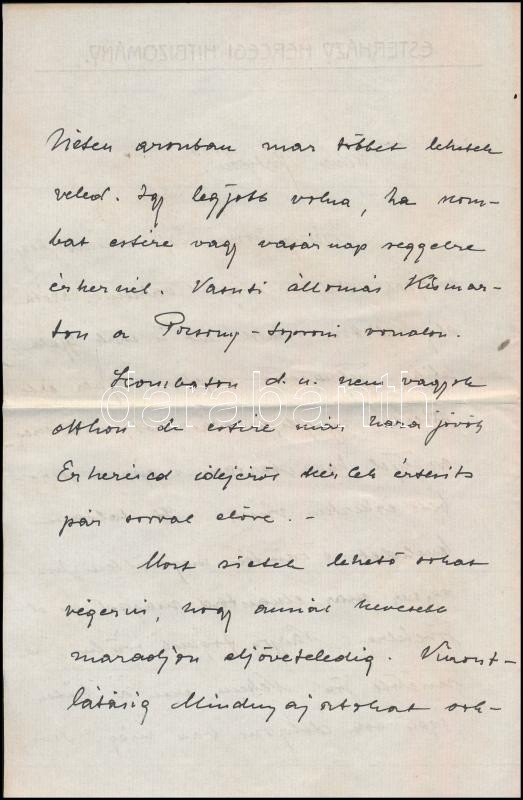 azonban már többet lehetek
veled. Így legjobb volna, ha szom-
bat estére vagy vasárnap reggelre
érkeznél. Vasuti állomás Kismar-
ton a Pozsony-soproni vonalon.
Szombaton d. u. nem vagyok
otthon de estére már haza jövök
Érkezésed idejéről kérlek értesíts
pár sorral előre. –
Most sietek lehető sokat
végezni, hogy annál kevesebb
maradjon eljöveteledig. Viszont-
látásig Mindnyájotokat sok-
darabanth
ESTERHÁZY HERCEGI HITBIZOMÁNY.